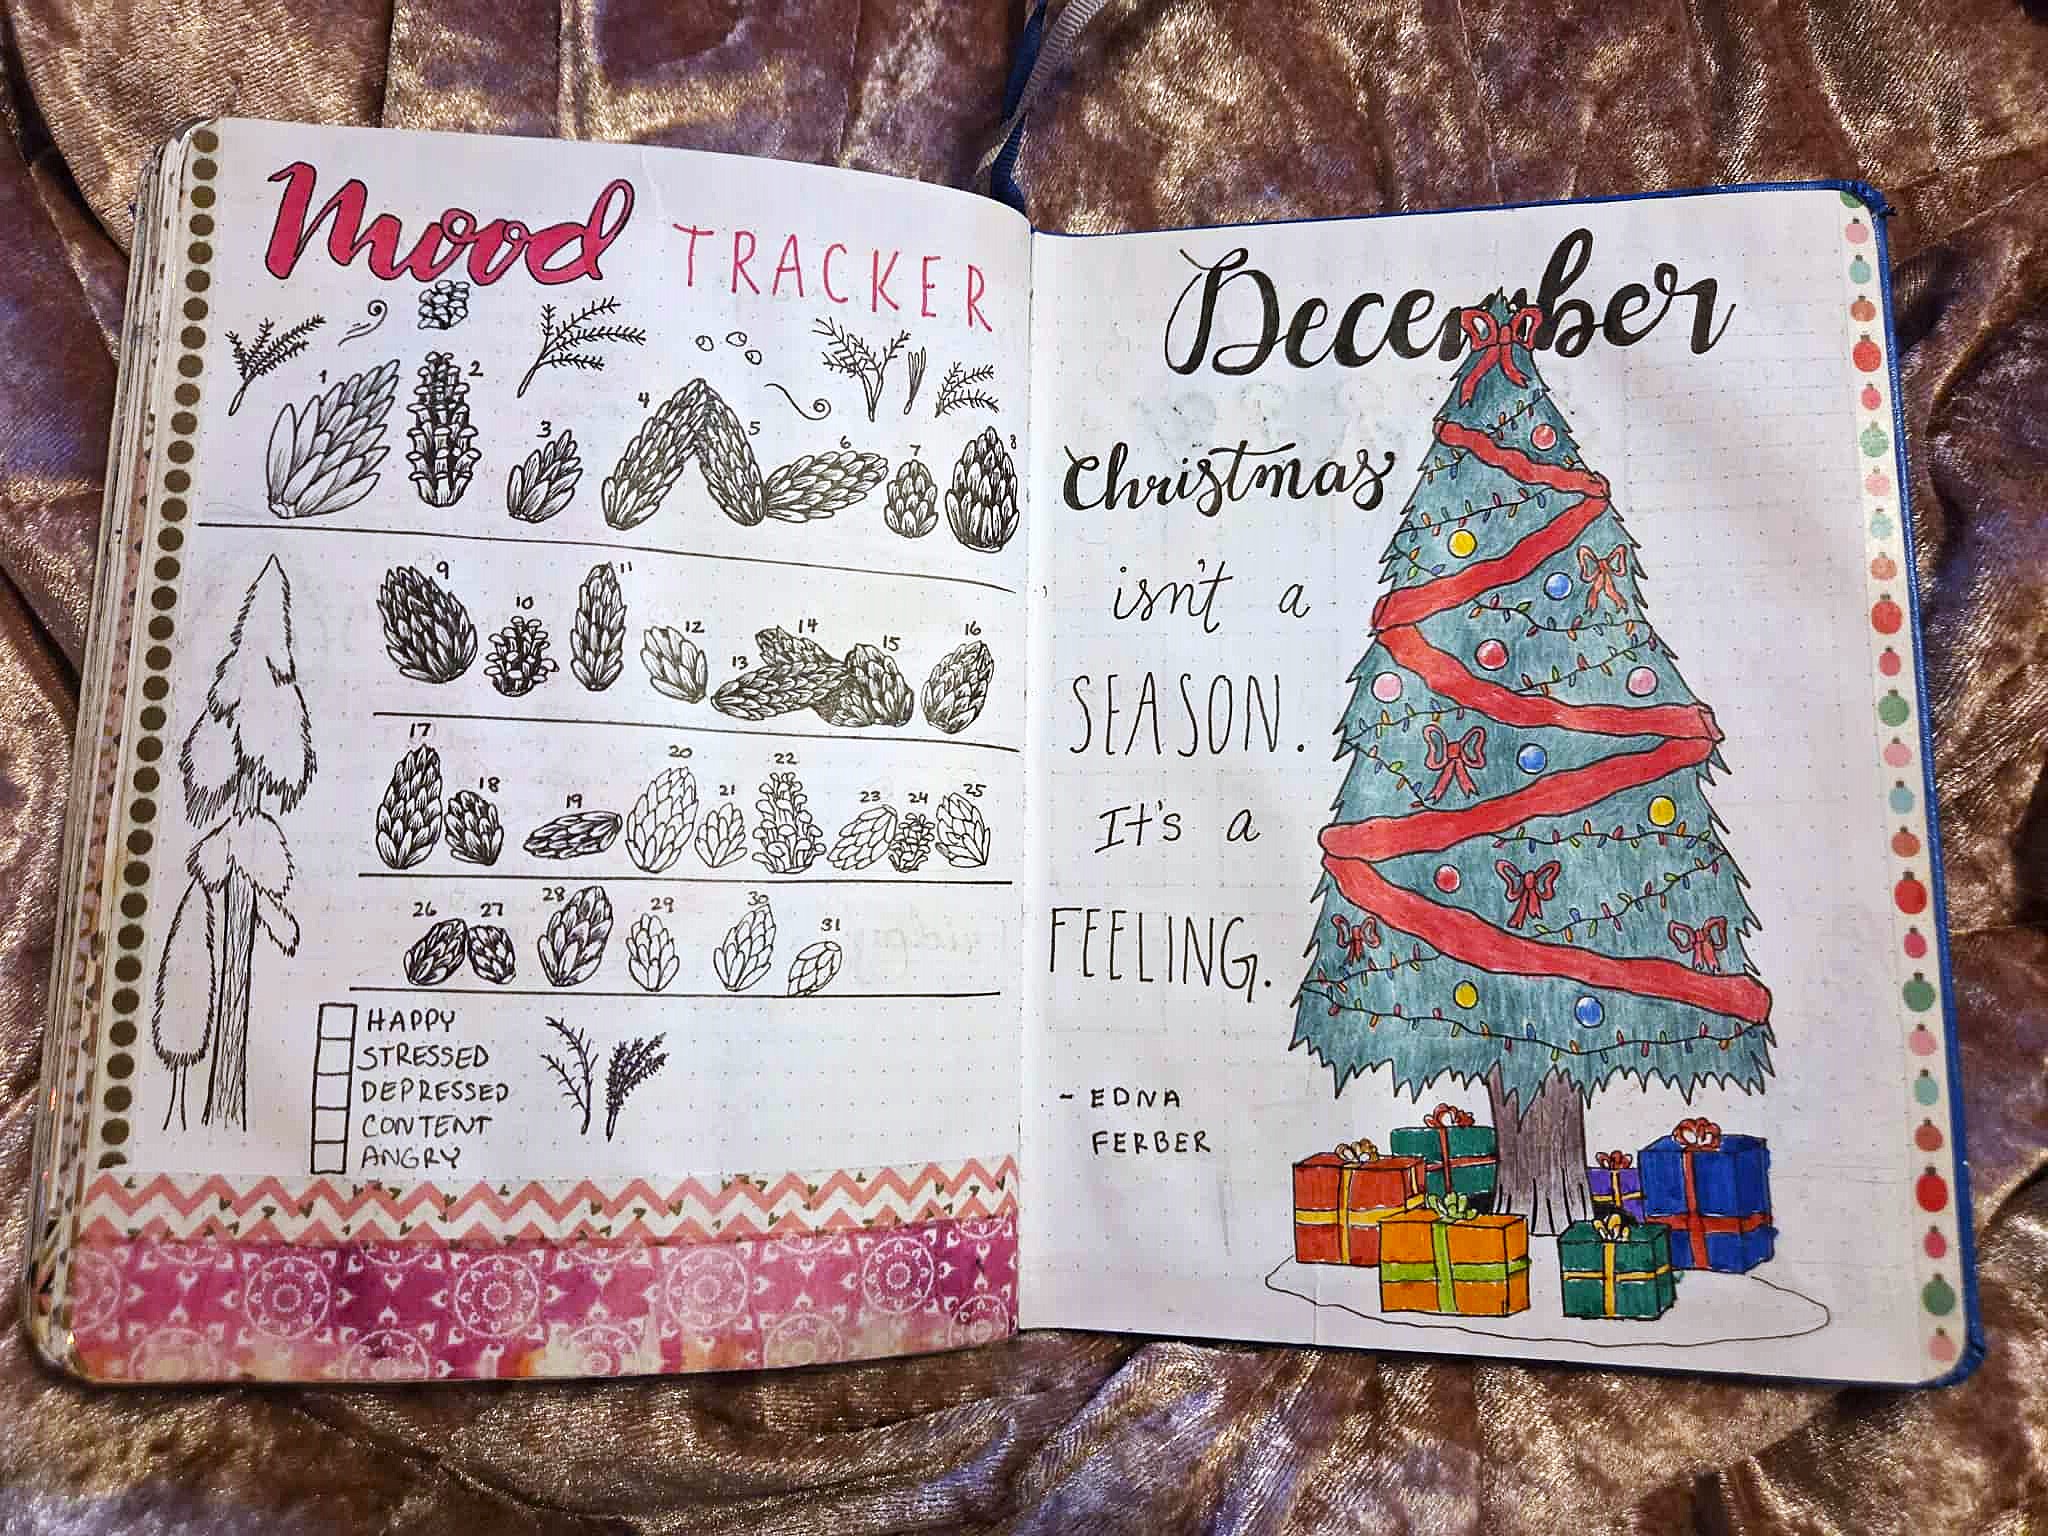 Mood TRACKER
1 2 3 4 5 6 7 8
9 10 11 12 13 14 15 16
17 18 19 20 21 22 23 24 25
26 27 28 29 30 31
HAPPY
STRESSED
DEPRESSED
CONTENT
ANGRY
December
Christmas
isn't a
SEASON.
It's a
FEELING.
- EDNA
FERBER